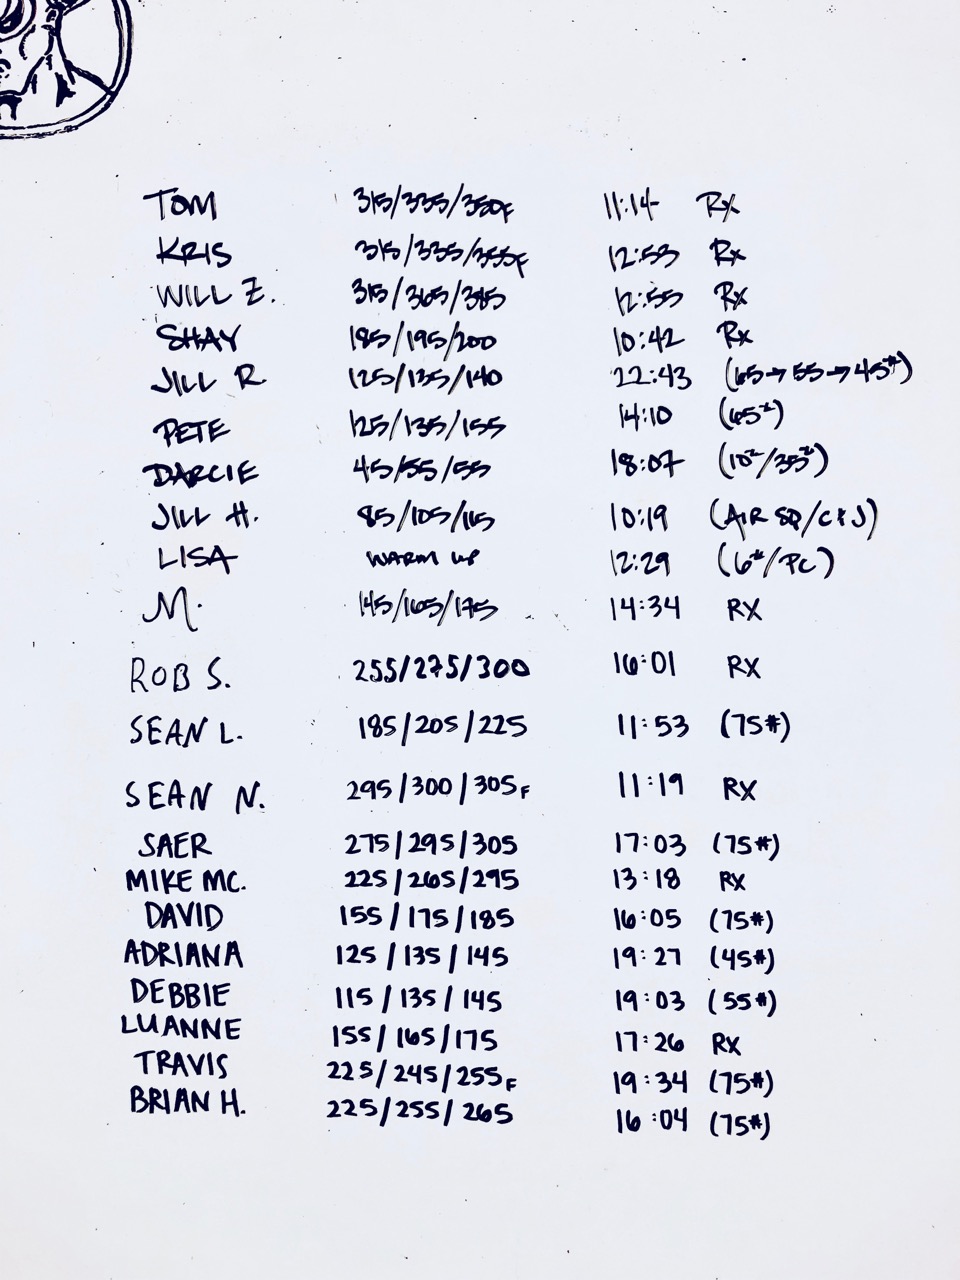 TOM 315/335/350F 11:14 Rx
KRIS 315/335/355F 12:53 Rx
WILL Z. 315/365/385 12:55 Rx
SHAY 185/195/200 10:42 Rx
JILL R. 125/135/140 22:43 (65→55→45#)
PETE 125/135/155 14:10 (65#)
DARCIE 45/55/55 18:07 (10#/35#)
JILL H. 85/105/115 10:19 (AIR SQ/C+J)
LISA WARM UP 12:29 (6#/PC)
M. 145/165/175 14:34 RX
ROB S. 255/275/300 16:01 RX
SEAN L. 185/205/225 11:53 (75#)
SEAN N. 295/300/305F 11:19 RX
SAER 275/295/305 17:03 (75#)
MIKE MC. 225/265/295 13:18 RX
DAVID 155/175/185 16:05 (75#)
ADRIANA 125/135/145 19:27 (45#)
DEBBIE 115/135/145 19:03 (55#)
LUANNE 155/165/175 17:26 RX
TRAVIS 225/245/255F 19:34 (75#)
BRIAN H. 225/255/265 16:04 (75#)